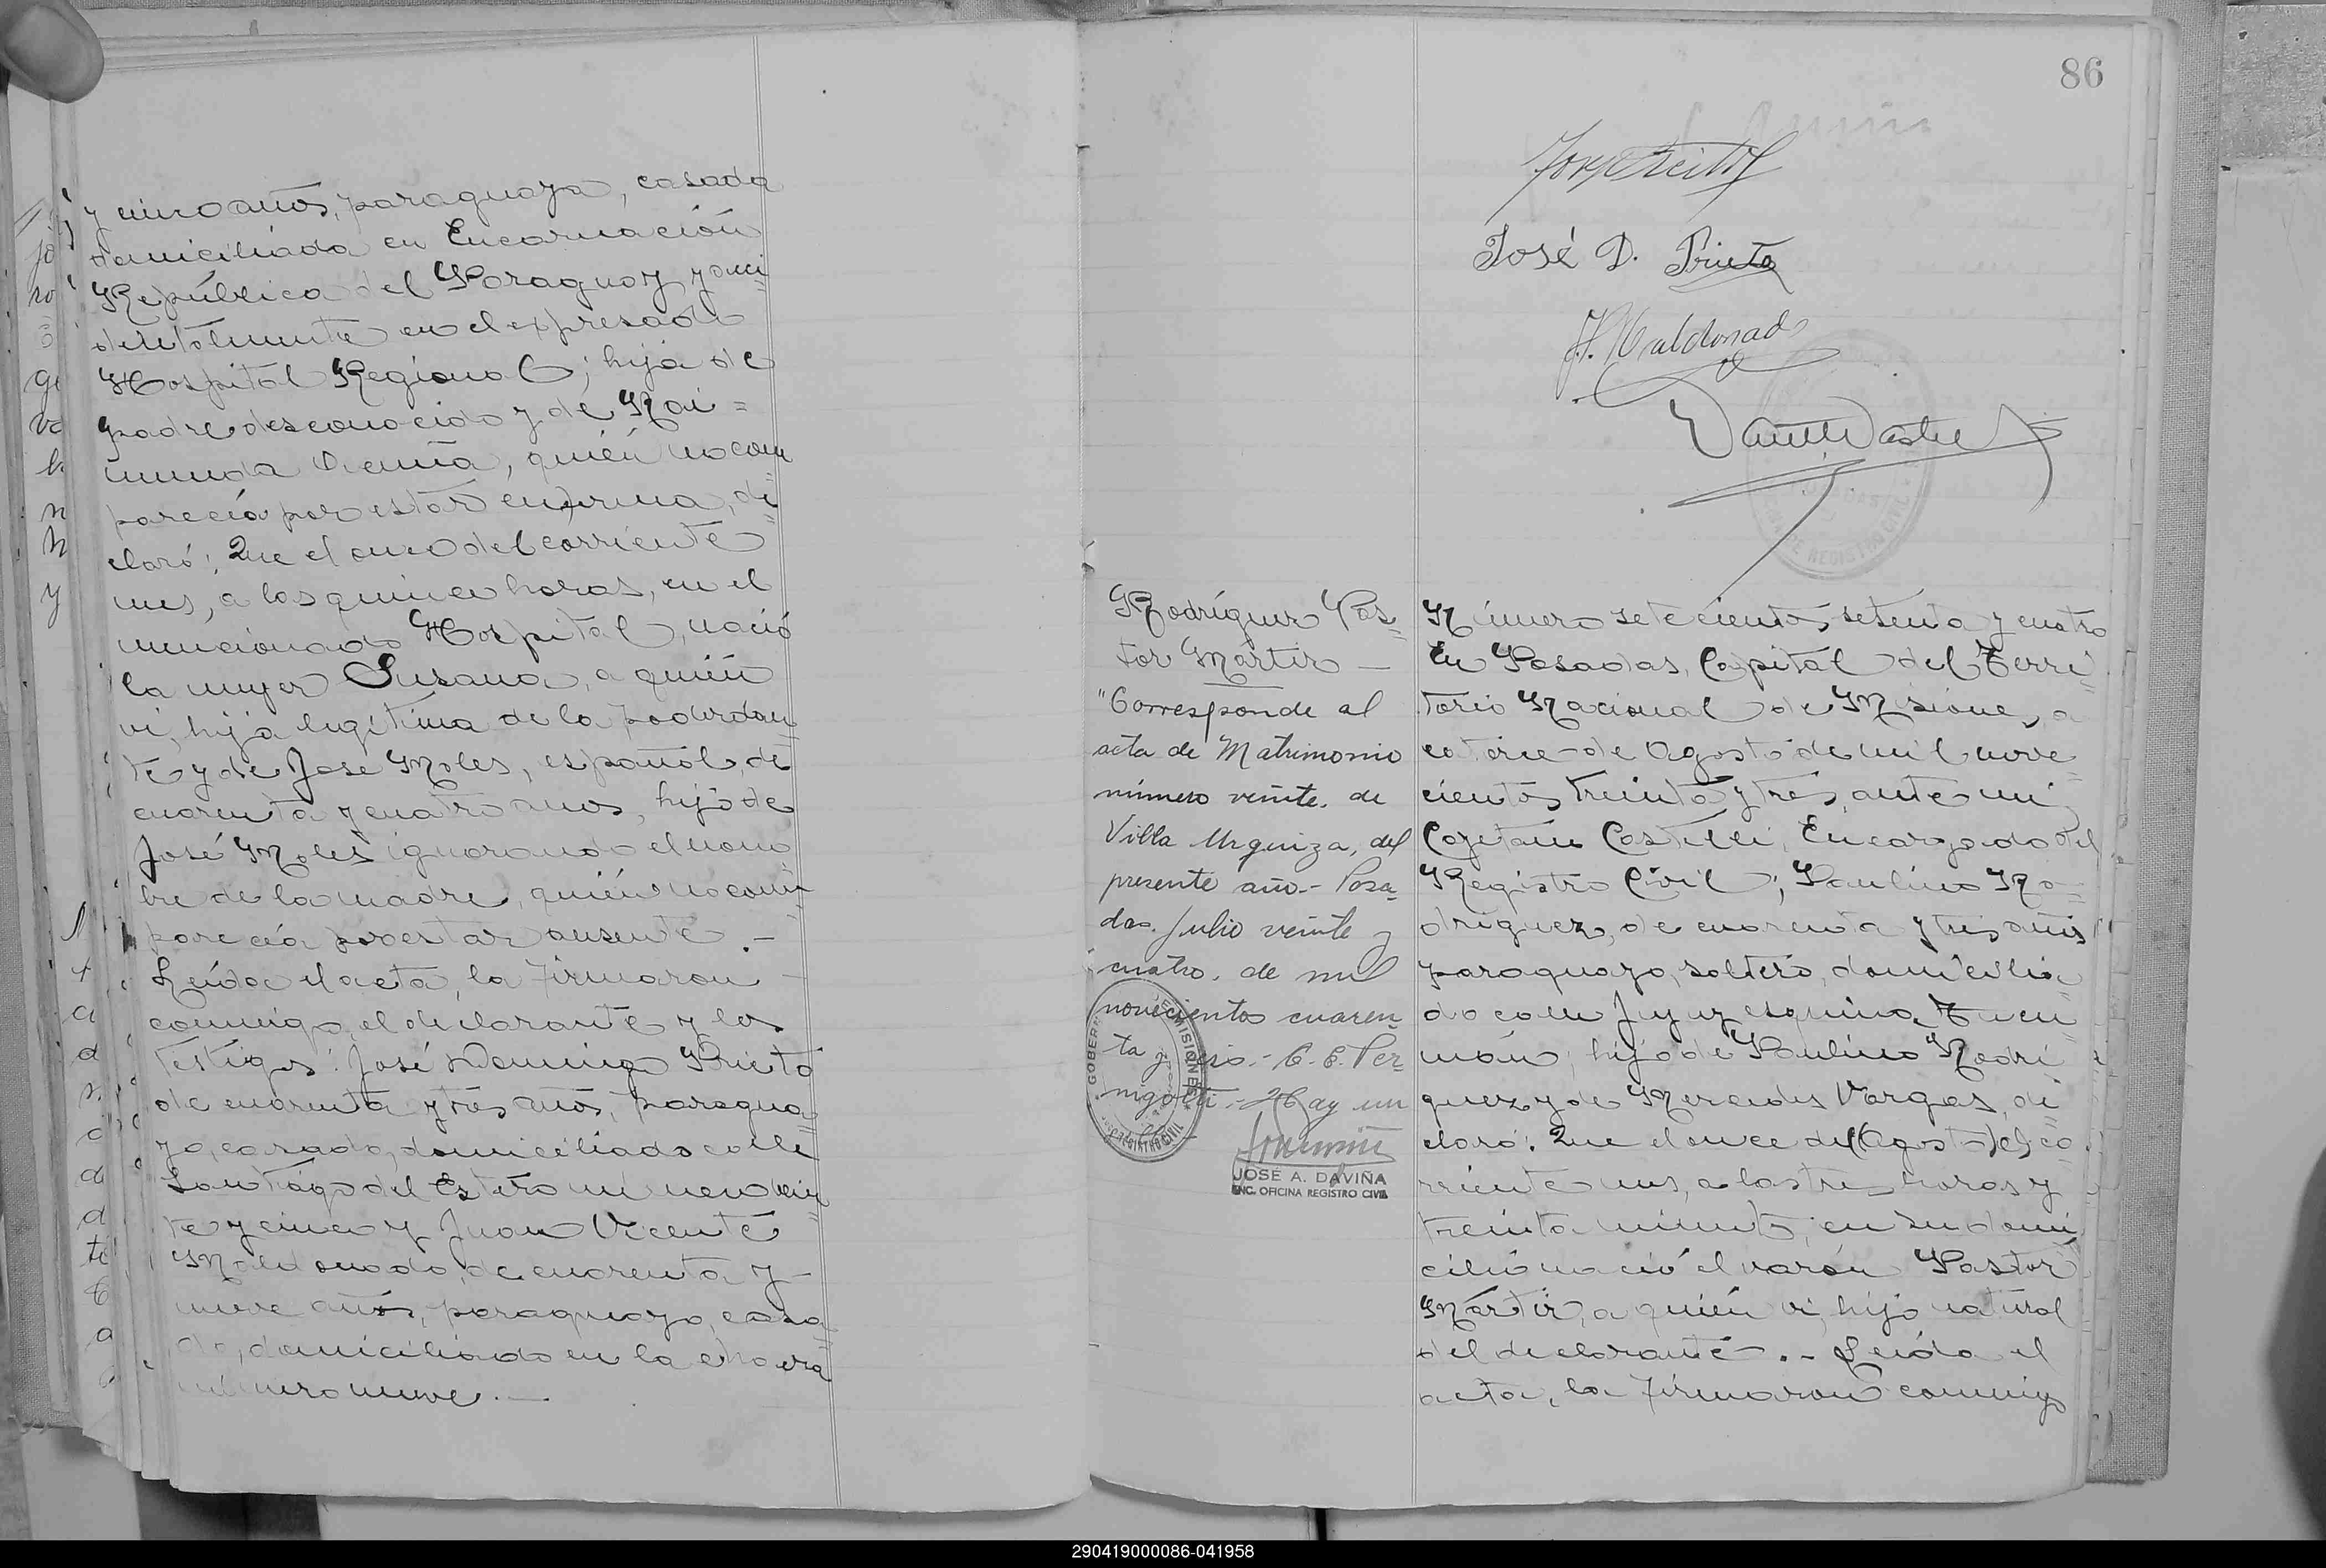 y cinco años, paraguaya, casada
domiciliada en Encarnación
República del Paraguay y acci=
dentalmente en el expresado
Hospital Regional; hija de
padre desconocido y de Rai=
munda Acuña, quién no com
pareció por estar enferma, de=
claró: Que el once del corriente
mes, a las quince horas, en el
mencionado Hospital, nació
la mujer Susana, a quién
vi, hija legítima de la poderdan=
te y de José Moles, español, de
cuarenta y cuatro anos, hijo de
José Moles ignorando el nom
bre de la madre, quién no com=
pareció por estar ausente.-
Leída el acta, la firmaron
conmigo, el declarante y los
testigos: José Domingo Prieto
de cuarenta y tres años, paragua=
yo, casado, domiciliado calle
Santiago del Estero número vein
te y cinco y Juan Vicente
Maldonado, de cuarenta y
nueve años, paraguayo, casa=
do, domiciliado en la chacra
número nueve.-
86
José D. Prieto
J. V. Maldonado
Rodríguez Pas=
tor Mártir -
"Corresponde al
acta de Matrimonio
número veinte. de
Villa Urquiza, del
presente año.- Posa=
das. Julio veinte y
cuatro. de mil
novecientos cuaren
ta y
JOSÉ A. DAVIÑA
ENC. OFICINA REGISTRO CIVIL
Número setecientos setenta y cuatro
En Posadas, Capital del Terri=
torio Nacional de Misiones, a
catorce de Agosto de mil nove=
cientos treinta y tres, ante mi
Cayetano Castelli, Encargado del
Registro Civil; Paulino Ro=
dríguez, de cuarenta y tres años
paraguayo, soltero, domicilia=
do calle Jujuy esquina Tucu
mán, hijo de Paulino Rodrí
guez y de Mercedes Vargas, de
claró: Que el once del (Agosto) el co
rriente mes, a las tres horas y
treinta minutos, en su domi
cilio nació el varón Pastor
Mártir, a quién vi, hijo natural
del declarante.- Leída el
acta, la firmaron conmigo